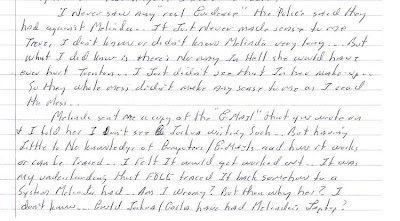 I Never saw any "real Evidence" the Police said they
had against Melinda.. It Just Never made sense to me
True, I don't know or didn't know Melinda very long... But
what I did know is there's No way In Hell she would have
ever hurt Trenton... I Just didn't see that In her make-up..
So they whole mess didn't make any sense to me as I read
the mess..
Melinda sent me a copy of the "E-Mail" that you wrote on
& I told her I don't see Joshua writing Such.. But having
little to No knowledge of Computers/E-Mails and how it works
or can be Traced.. I felt It would get worked out.. It was
my understanding that FDLE traced It back somehow to a
System Melinda had.. Am I wrong? But then why her? I
don't know.. Could Joshua/ have had Melinda's Laptop?